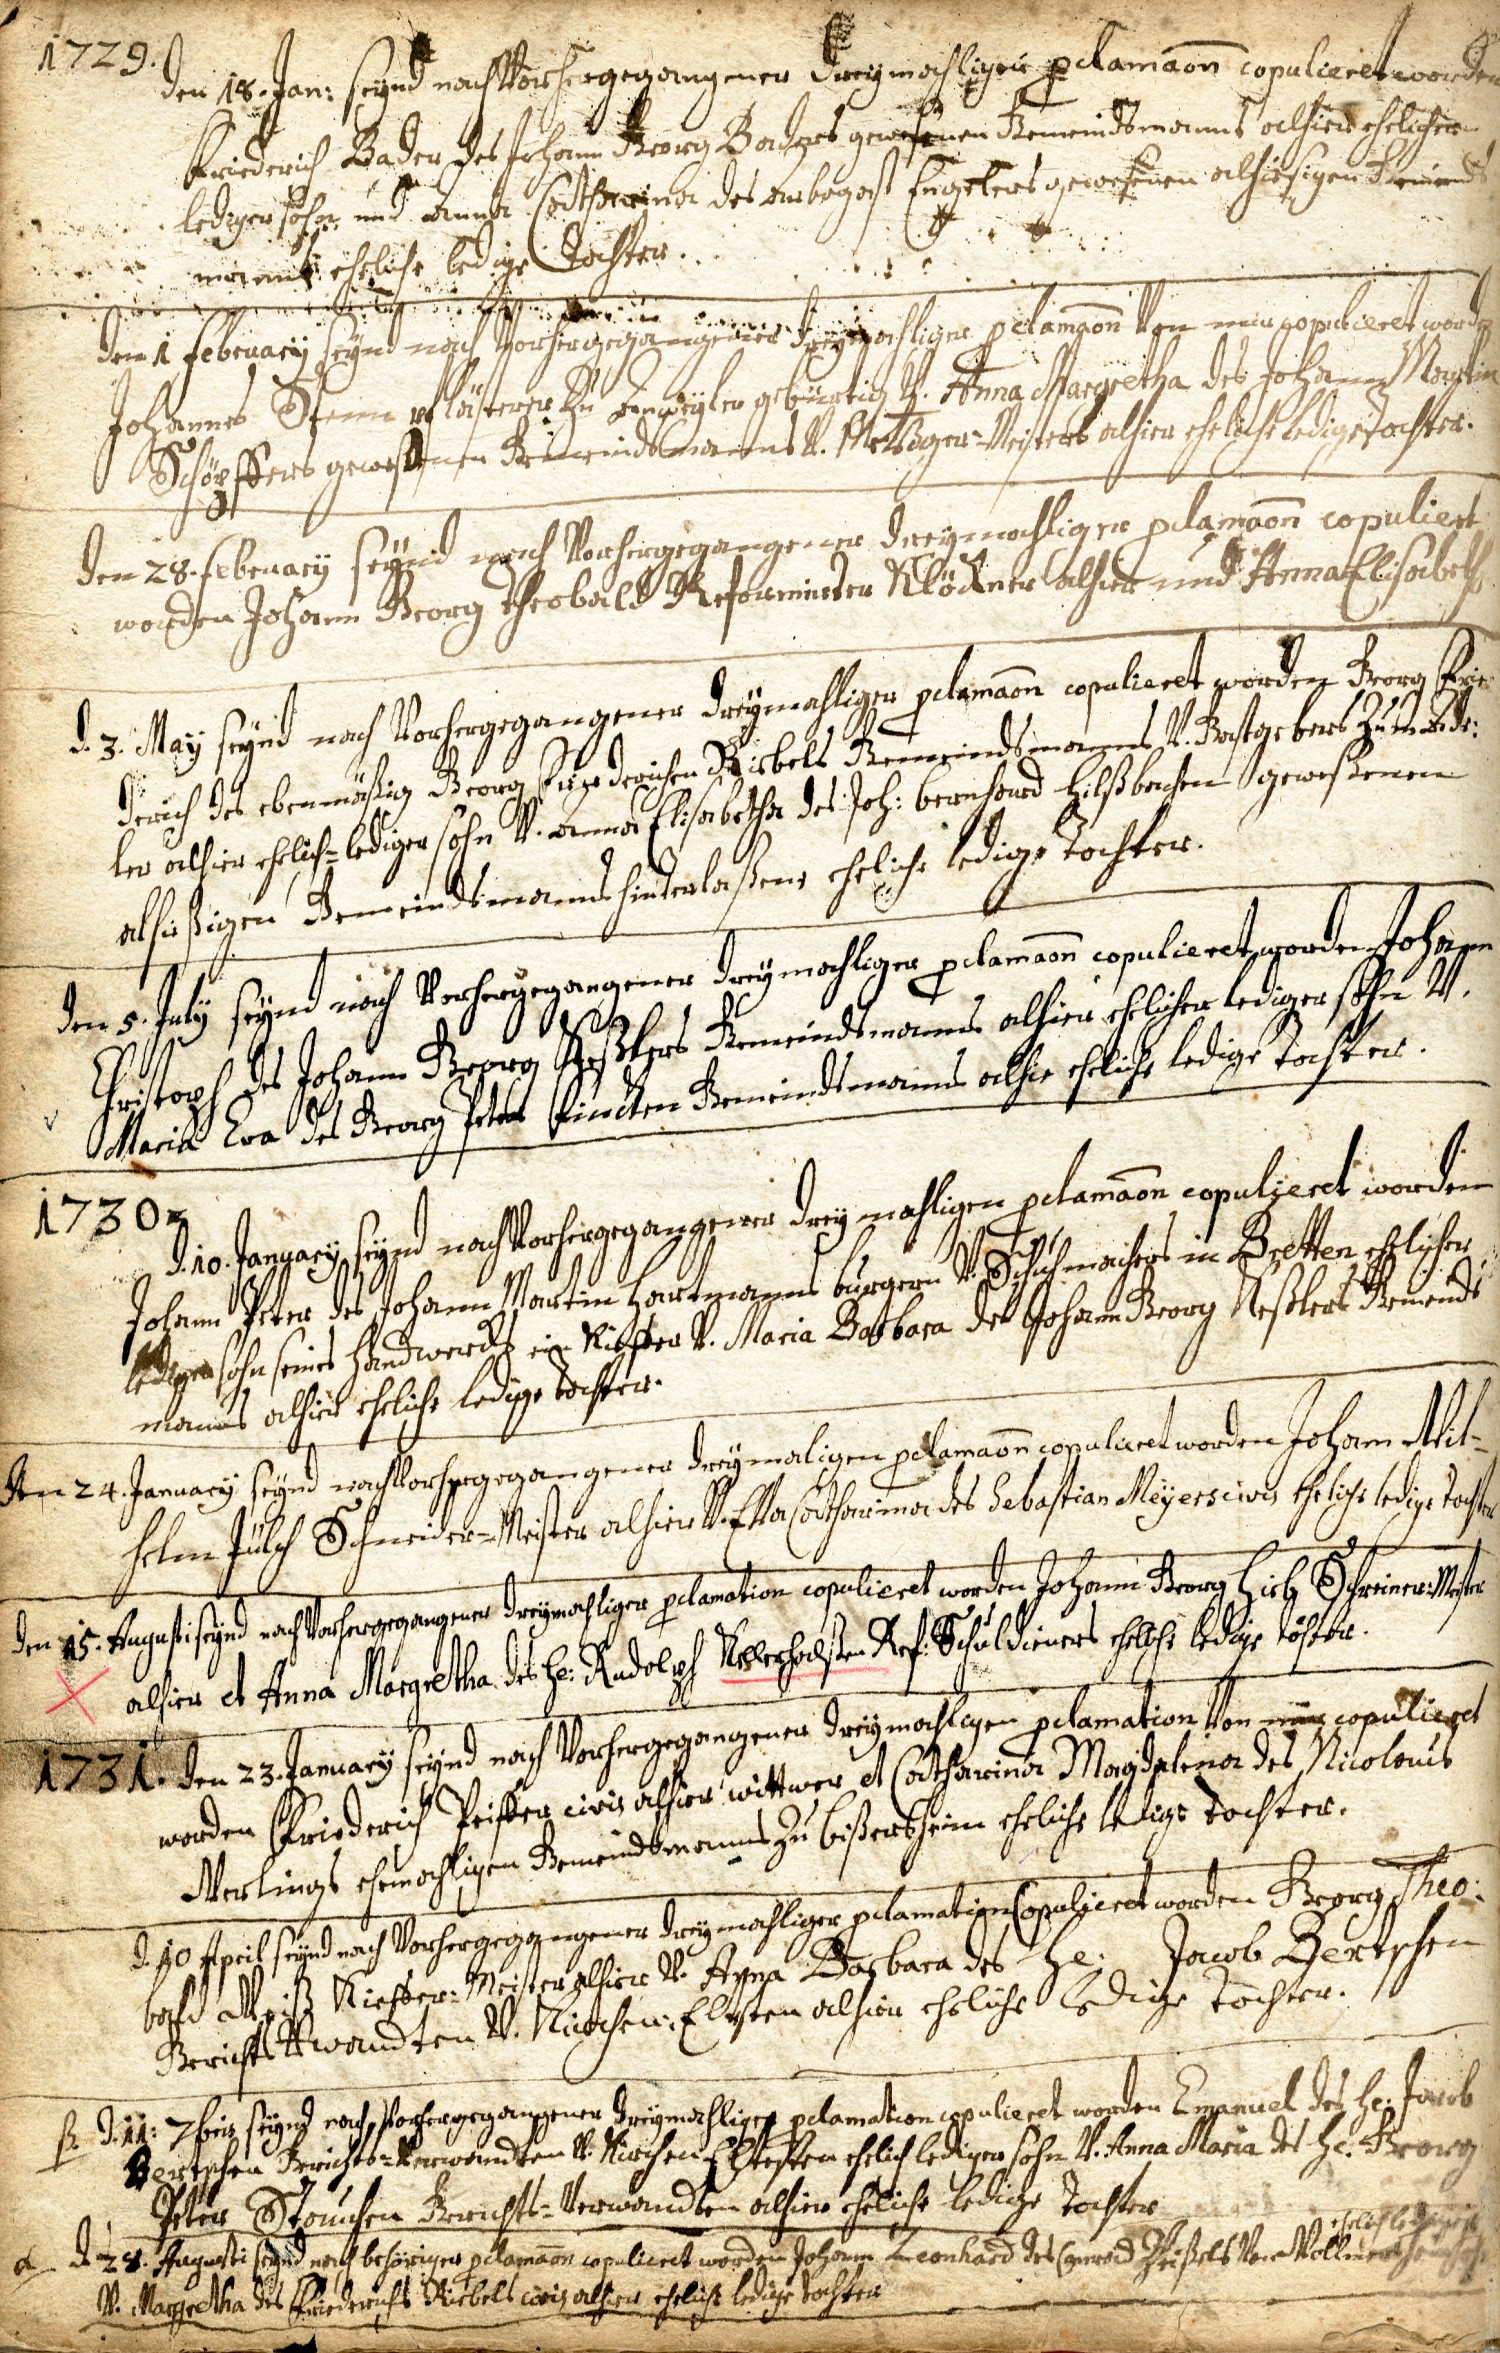 1729.
den 18. Jan: seynd nach Vorhergegangener dreymahliger pclamaōn copulieret worden
Friederich Bader des Johann Georg Baders gewesenen Gemeindsmanns alhier ehelicher
lediger sohn und anna Catharina des arbogast Engelers gewesenen alhiesigen Gemeinds
manns eheliche ledige Tochter.
den 1 february seynd nach Vorhergegangener dreymahliger pclamaōn Von mir copulieret worden
Johannes Stein zu gebürtig V. Anna Margretha des Johann Martin
Schöpffers gewesenen Gemeindsmanns V. Metzger-Meisters alhier eheliche ledige tochter.
den 28. february seynd nach Vorhergegangener dreymahliger pclamaōn copuliert
worden Johann Georg theobald Reformirter Klöckner alhier und Anna Elisabeth
d. 3. May seynd nach Vorhergegangener dreymahliger pclamaōn copulieret worden Georg Frie-
derich des ebenmäßig Georg Friederichen Riebels Gemeindsmanns V. Gastgebers zum
ler alhier ehelich-lediger sohn V. anna Elisabetha des Joh: bernhard hilßbachen geweßenen
alhießigen Gemeindsmanns hinterlaßene eheliche ledige tochter.
den 5. July seynd nach Vorhergegangener dreymahliger pclamaōn copulieret worden Johann
Christoph des Johann Georg Keßlers Gemeindsmanns alhier ehelicher lediger sohn V.
Maria Eva des Georg Peter Fincken Gemeindsmanns alhie eheliche ledige Tochter.
1730
d. 10. January seynd nach Vorhergegangener dreymahligen pclamaōn copulieret worden
Johann Peter des Johann Martin Hartmanns burgern V. Schuhmachers in Bretten ehelicher
lediger sohn seines handwercks ein Kieffer V. Maria Barbara des Johann Georg Keßlers Gemeinds
manns alhier eheliche ledige tochter.
den 24. January seynd nach Vorhergegangener dreymaligen pclamaōn copulieret worden Johann Wil-
helm Jülch Schneider-Meister alhier V. Eva Catharina des Sebastian Meyers civis eheliche ledige tochter
den 15. Augusti seynd nach Vorhergegangener dreymahliger pclamation copulieret worden Johann Georg Hieb Schreiner-Meister
alhier et Anna Margretha des He: Rudolph Kellerhalßen Ref: Schuldieners eheliche ledige töchter.
1731. den 23. January seynd nach Vorhergegangener dreymahligen pclamation Von mir copulieret
worden Friederich Peiffer civis alhier wittwer et Catharina Magdalena des Nicolaus
Werlings ehemahligen Gemeindsmanns zu bißersheim eheliche ledige tochter.
d. 10 April seynd nach Vorhergegangener dreymahliger pclamation Copulieret worden Georg Theo-
bald Weiß Kieffer-Meister alhier V. Anna Barbara des He: Jacob Bertschen
Gerichts Verwandten V. Kirchen-Eltesten alhier eheliche ledige Tochter.
ß. d. 11: 7bris seynd nach Vorhergegangener dreymahliger pclamation copulieret worden Emanuel des He: Jacob
Bertschen Gerichts-Verwandten V. Kirchen-Eltesten ehelich lediger sohn V. Anna Maria des He: Georg
Peter Stauchen Gerichts-Verwandten alhier eheliche ledige Tochter
α d. 28. Augusti seynd nach behöriger pclamaōn copulieret worden Johann Leonhard des Conrad Von Vollmersheim
V. Margretha des Friederichs Riebels civis alhier eheliche ledige tochter